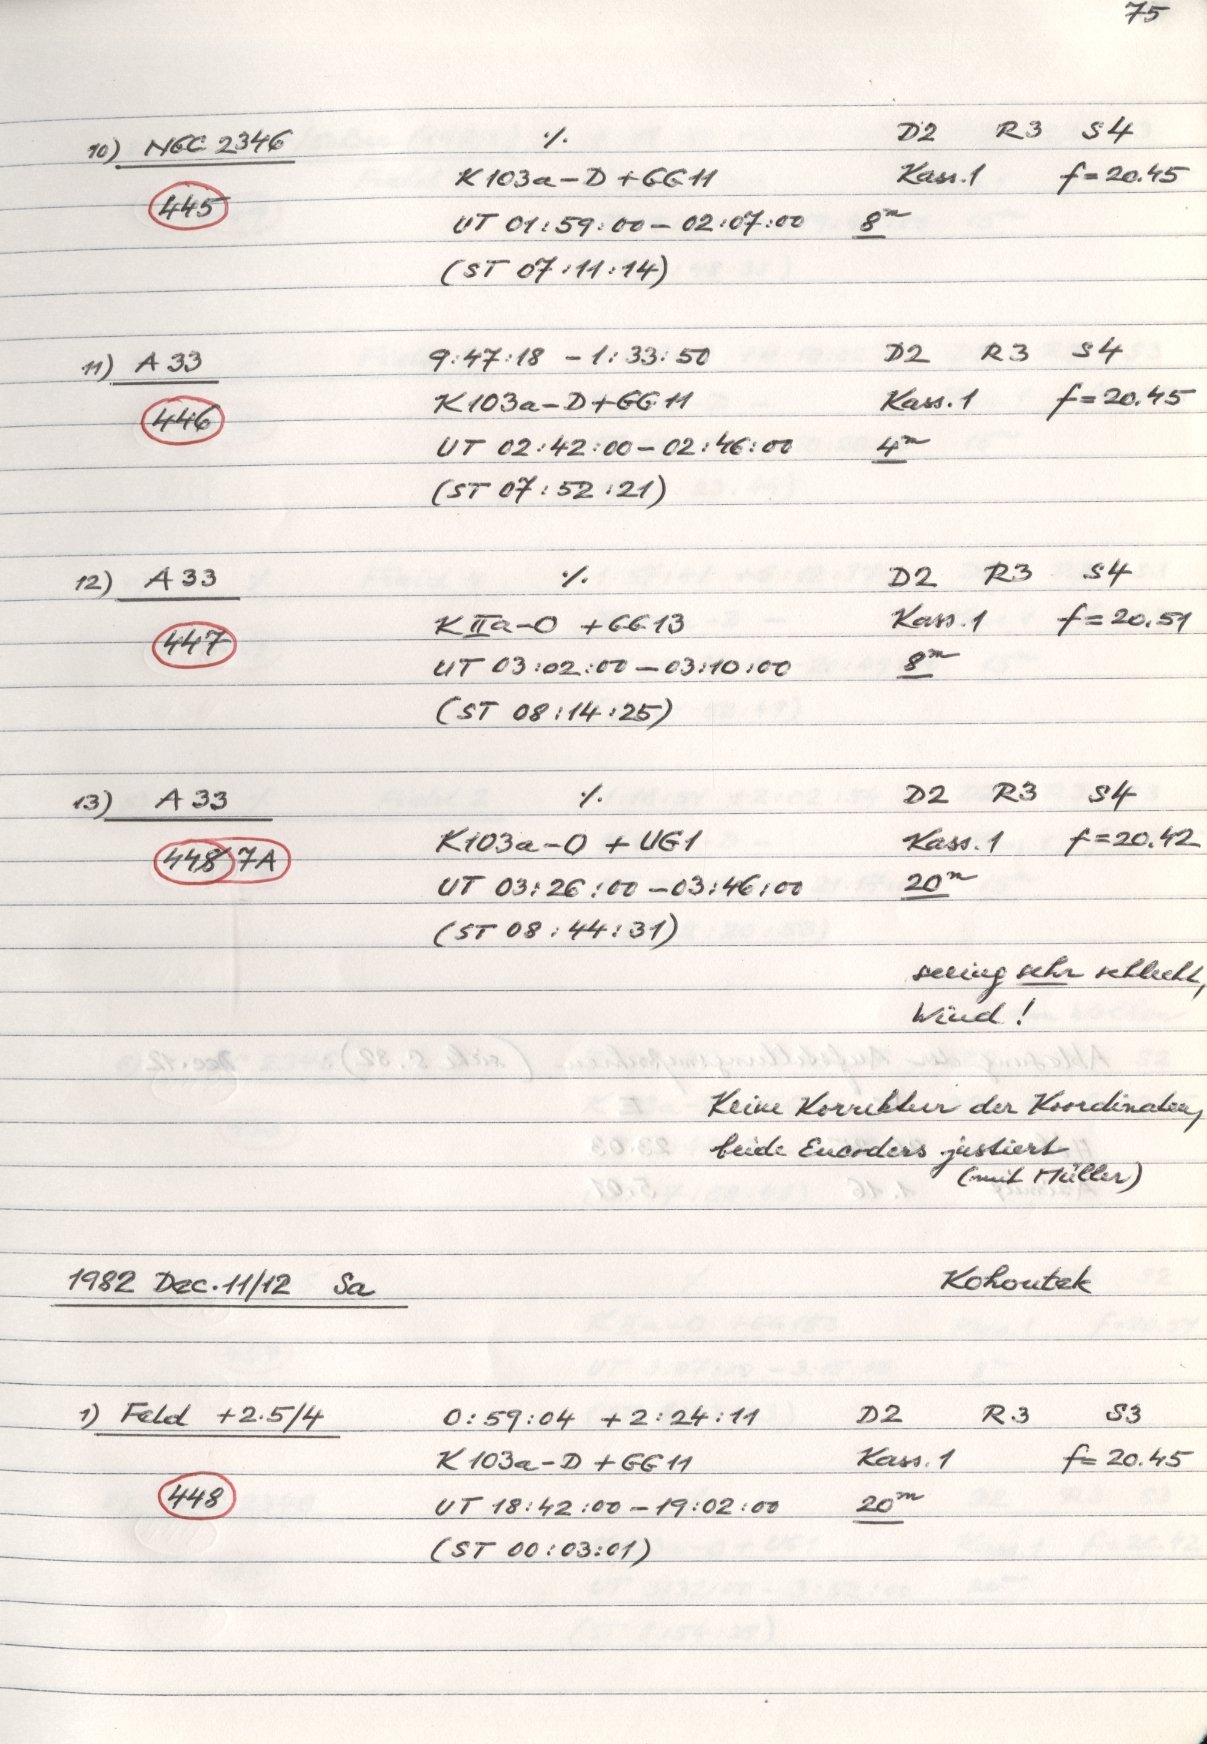 75
10) NGC 2346 ٪ D2 R3 S4
K103a-D+GG11 Kass.1 f=20.45
445
UT 01:59:00-02:07:00 8m
(ST 07:11:14)
11) A 33 9:47:18 -1:33:50 D2 R3 S4
446 K103a-D+GG11 Kass.1 f=20.45
UT 02:42:00-02:46:00 4m
(ST 07:52:21)
12) A 33 ٪ D2 R3 S4
447 KIIa-O +GG13 Kass.1 f=20.51
UT 03:02:00-03:10:00 8m
(ST 08:14:25)
13) A 33 ٪ D2 R3 S4
448 7A K103a-O + UG1 Kass.1 f=20.42
UT 03:26:00-03:46:00 20m
(ST 08:44:31)
seeing sehr schlecht,
Wind!
Keine Korrektur der Koordinaten,
beide Encoders justiert
(mit Müller)
1982 Dec.11/12 Sa Kohoutek
1) Feld +2.5/4 0:59:04 +2:24:11 D2 R3 S3
K103a-D+GG11 Kass.1 f=20.45
448 UT 18:42:00-19:02:00 20m
(ST 00:03:01)